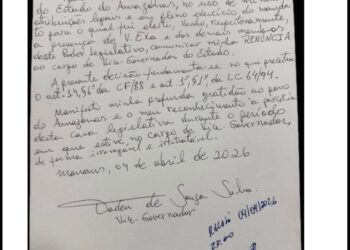 do Estado do Amazonas, no uso de minhas
atribuições legais e em pleno exercício do mandato
para o qual fui eleito, venho, respeitosamente,
a presença de V. Exa e dos demais membros
deste Poder Legislativo, comunicar minha RENÚNCIA
ao cargo de Vice-Governador do Estado.
A presente decisão fundamenta-se no que preceitua
o art. 14, §6º da CF/88 e art. 1º, §1º da LC 64/94.
Manifesto minha profunda gratidão ao povo
do Amazonas e o meu reconhecimento à parceria
desta Casa legislativa durante o período
em que estive no cargo de Vice-Governador,
de forma irrevogável e irretratável.
Manaus, 04 de abril de 2026
Tadeu de Souza Silva
Vice-Governador
Recebi 04/04/2026